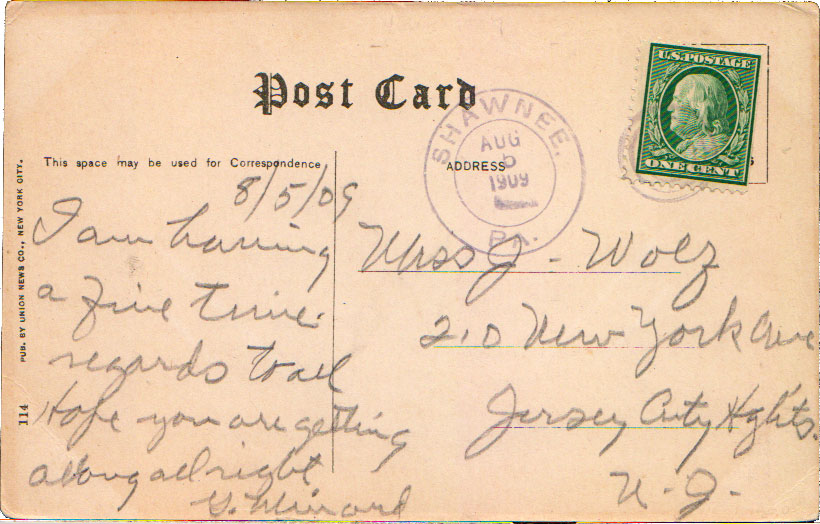 Post Card
This space may be used for Correspondence
ADDRESS
U.S. POSTAGE
ONE CENT
SHAWNEE.
AUG
5
1909
PA.
PUB. BY UNION NEWS CO., NEW YORK CITY.
114
8/5/09
I am having
a fine time.
regards to all
Hope you are getting
along allright
Miss J - Wolz
210 New York Ave
Jersey City Hghts.
N - J -